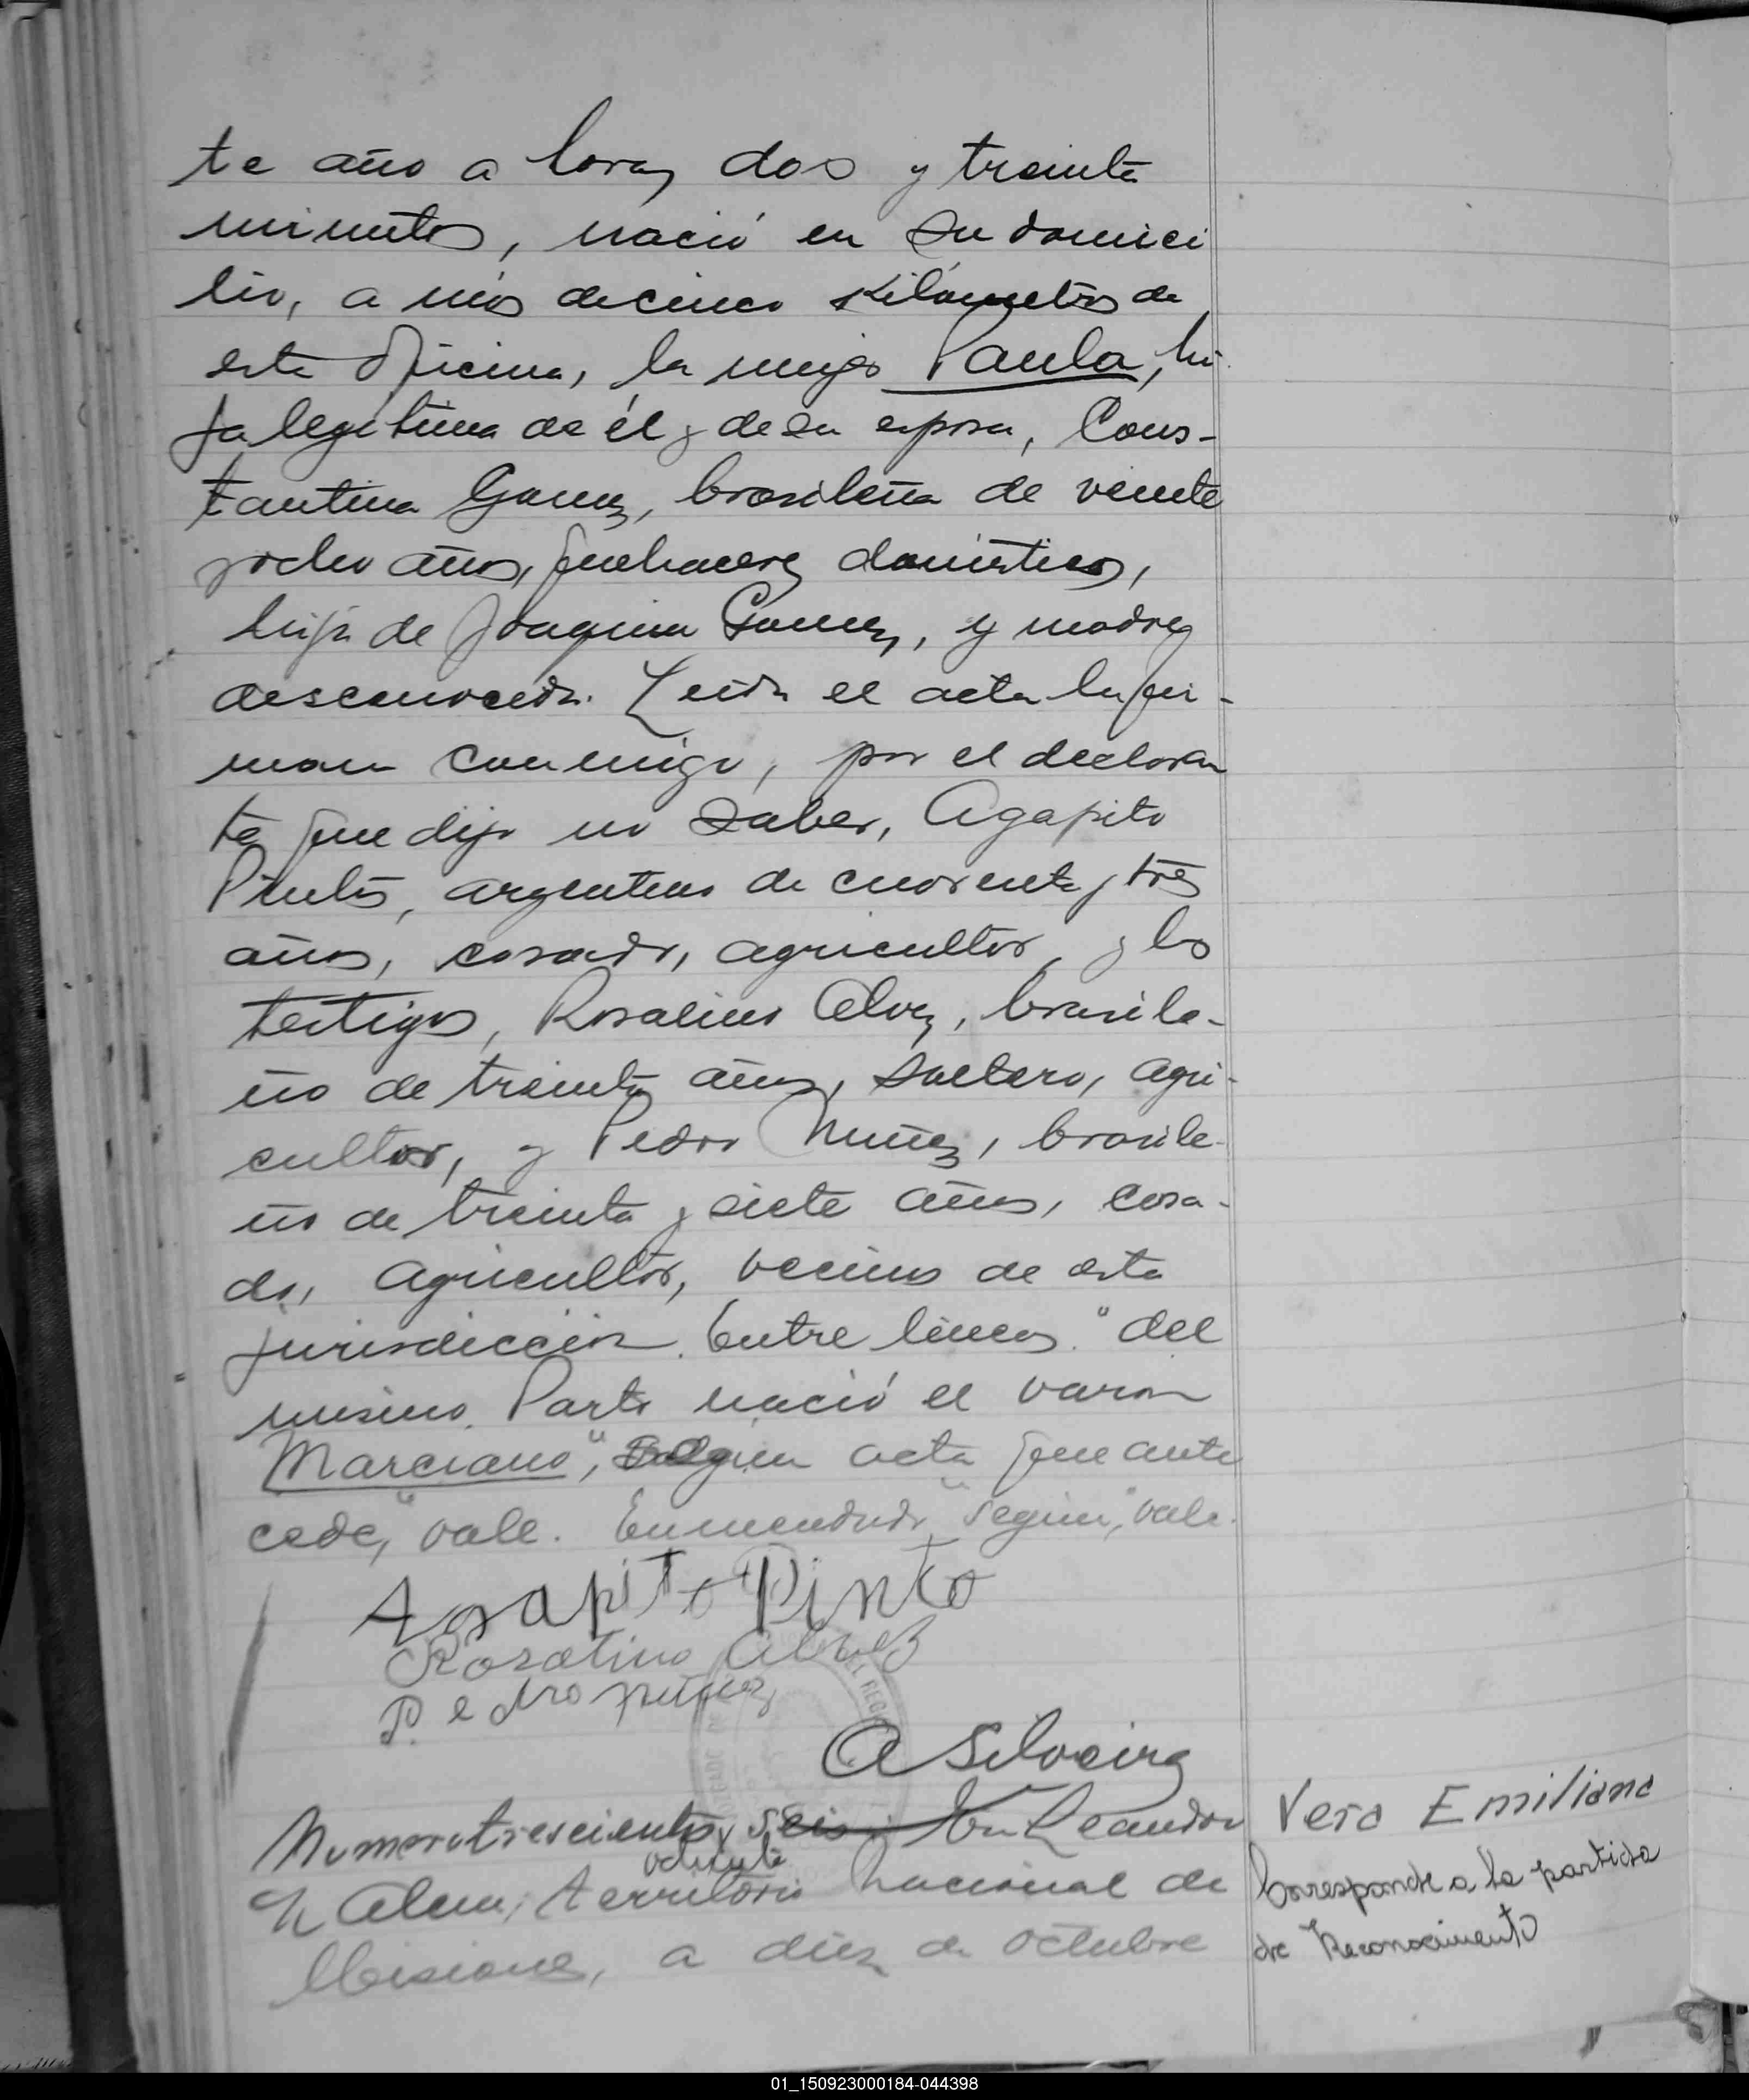 te año a horas dos y treinta
minutos, nació en su domici
lio, a más de cinco kilómetros de
esta Oficina, la mujer Paula, hi-
ja legítima de él y de su esposa, Cons-
tantina Gomez, brasileña de veinte
y ocho años, quehaceres domésticos,
hija de Joaquina Gomez, y madre
desconocida. Leída el acta la fir-
man conmigo, por el declaran
te que dijo no saber, Agapito
Pinto, argentino de cuarenta y tres
años, casado, agricultor, y los
testigos, Rosalino Alvez, brasile-
ño de treinta años, soltero, agri-
cultor, y Pedro Nuñez, brasile-
ño de treinta y siete años, casa-
do, agricultor, vecinos de esta
jurisdicción. Entre líneas "del
mismo Parto nació el varon
Marciano", según acta que ante
cede," vale. Enmendado "según", vale.
Agapito Pinto
Rosalino Alvez
Pedro nuñez
A Silveira
Numero trescientos y seis En Leandro
ochenta
N Alem, territorio Nacional de
Misiones, a diez de octubre
Vera Emiliana
Corresponde a la partida
de Reconocimiento
01_150923000184-044398